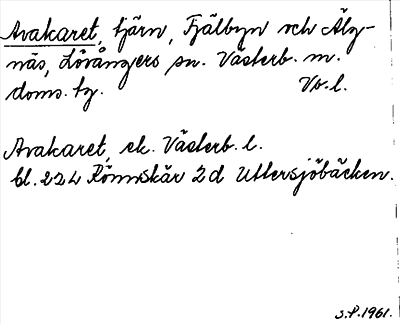 Avakaret, tjärn, Fjälbyn och Älg-
näs, Lövångers sn. Västerb. m.
doms. tg. Vb.l.
Avakaret, ek. Västerb. l.
bl. 224 Rönnskär 2d Uttersjöbäcken.
S.P. 1961.